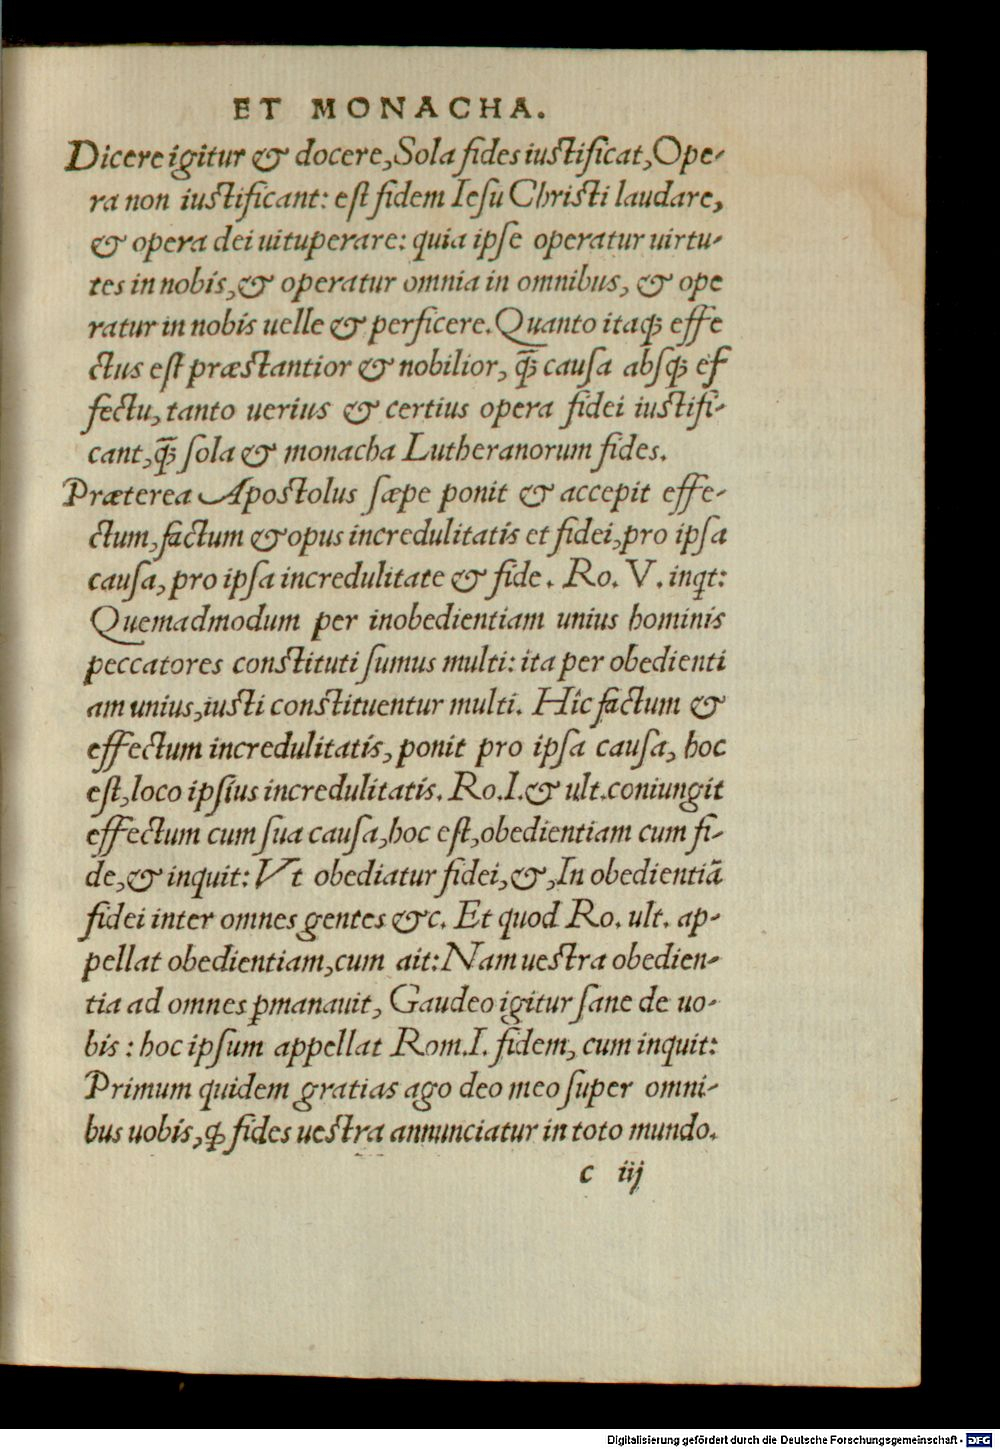 ET MONACHA.
Dicere igitur & docere, Sola fides iustificat, Ope-
ra non iustificant: est fidem Iesu Christi laudare,
& opera dei uituperare: quia ipse operatur uirtu-
tes in nobis, & operatur omnia in omnibus, & ope
ratur in nobis uelle & perficere. Quanto itaqꝫ effe
ctus est præstantior & nobilior, q̃ꝫ causa absqꝫ ef
fectu, tanto uerius & certius opera fidei iustifi-
cant, q̃ꝫ sola & monacha Lutheranorum fides.
Præterea Apostolus sæpe ponit & accepit effe-
ctum, factum & opus incredulitatis et fidei, pro ipsa
causa, pro ipsa incredulitate & fide. Ro. V. inqt:
Quemadmodum per inobedientiam unius hominis
peccatores constituti sumus multi: ita per obedienti
am unius, iusti constituentur multi. Hîc factum &
effectum incredulitatis, ponit pro ipsa causa, hoc
est, loco ipsius incredulitatis. Ro. I. & ult. coniungit
effectum cum sua causa, hoc est, obedientiam cum fi-
de, & inquit: Vt obediatur fidei, &, In obedientiã
fidei inter omnes gentes &c. Et quod Ro. ult. ap-
pellat obedientiam, cum ait: Nam uestra obedien-
tia ad omnes ꝑmanauit, Gaudeo igitur sane de uo-
bis: hoc ipsum appellat Rom. I. fidem, cum inquit:
Primum quidem gratias ago deo meo super omni-
bus uobis, ꝙ fides uestra annunciatur in toto mundo.
c iij
Digitalisierung gefördert durch die Deutsche Forschungsgemeinschaft - DFG